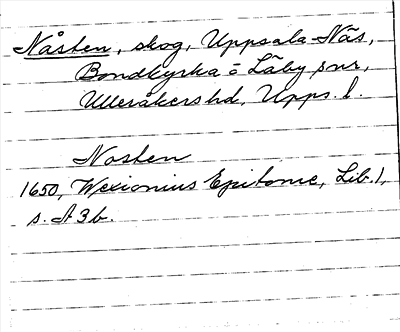 Nåsten, skog, Uppsala-Näs,
Bondkyrka o Läby snr,
Ulleråkers hd, Upps. l.
Nosten
1650, Wexionius Epitome, Lib. 1,
s. A 3 b.